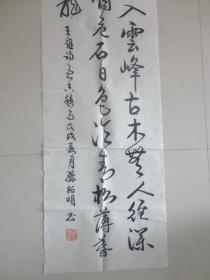 入雲峰古木無人徑深
咽危石日色冷青松薄暮
龍
王維詩過香積寺戊戌月孫紹明書